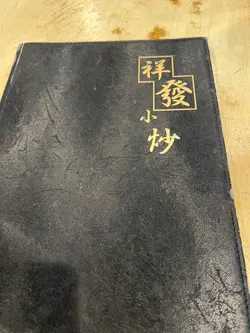 祥發
小炒